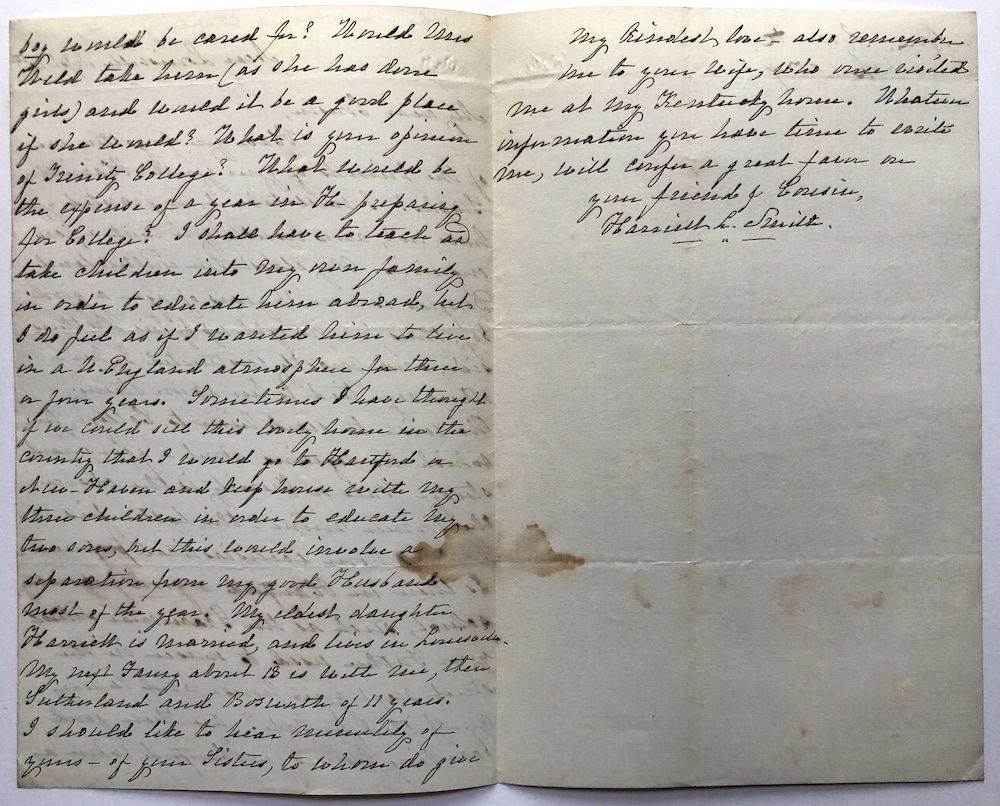 boy would be cared for? Would Mrs
Weld take him (as she has done
girls) and would it be a good place
if she would? What is your opinion
of Trinity College? What would be
the expense of a year in H- preparing
for College? I shall have to teach or
take children into my own family
in order to educate him abroad, but
I do feel as if I wanted him to live
in a N. England atmosphere for three
or four years. Sometimes I have thought
if we could sell this lovely home in the
country that I would go to Hartford or
New-Haven and keep house with my
three children in order to educate my
two sons, but this would involve a
separation from my good Husband
most of the year. My eldest daughter
Harriett is married, and lives in Louisville.
My next Fanny about 18 is with me, then
Sutherland and Bosworth of 11 years.
I should like to hear minutely of
yours - of your Sisters, to whom do give
my kindest love - also remember
me to your wife, who once visited
me at my Kentucky home. Whatever
information you have time to write
me, will confer a great favor on
your friend & Cousin,
Harriett L. Smith.